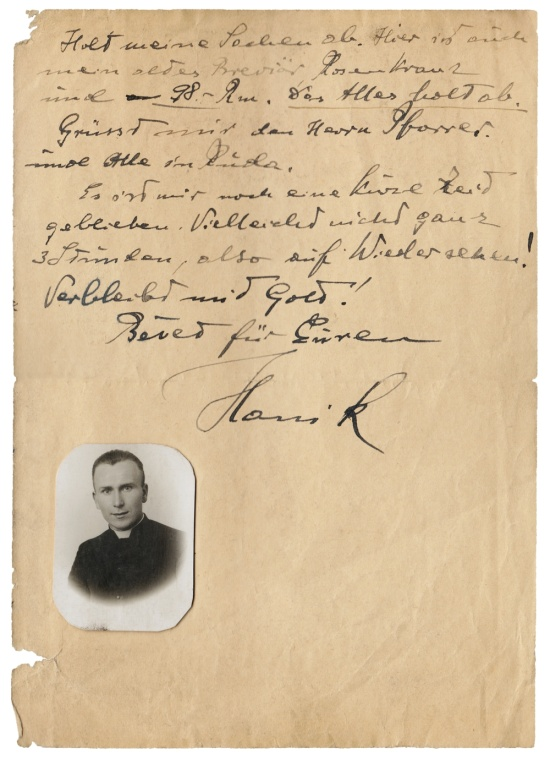 Holt meine Sachen ab. Hier ist auch
mein altes Brevier, Rosenkranz
und – 98.- Rm. Das Alles holt ab.
Grüsst mir den Herrn Pfarrer.
und Alle in Ruda.
Es ist mir noch eine kurze Zeit
geblieben. Vielleicht nicht ganz
3 Stunden, also auf Wiedersehen!
Verbleibt mit Gott!
Betet für Euren
Hanik